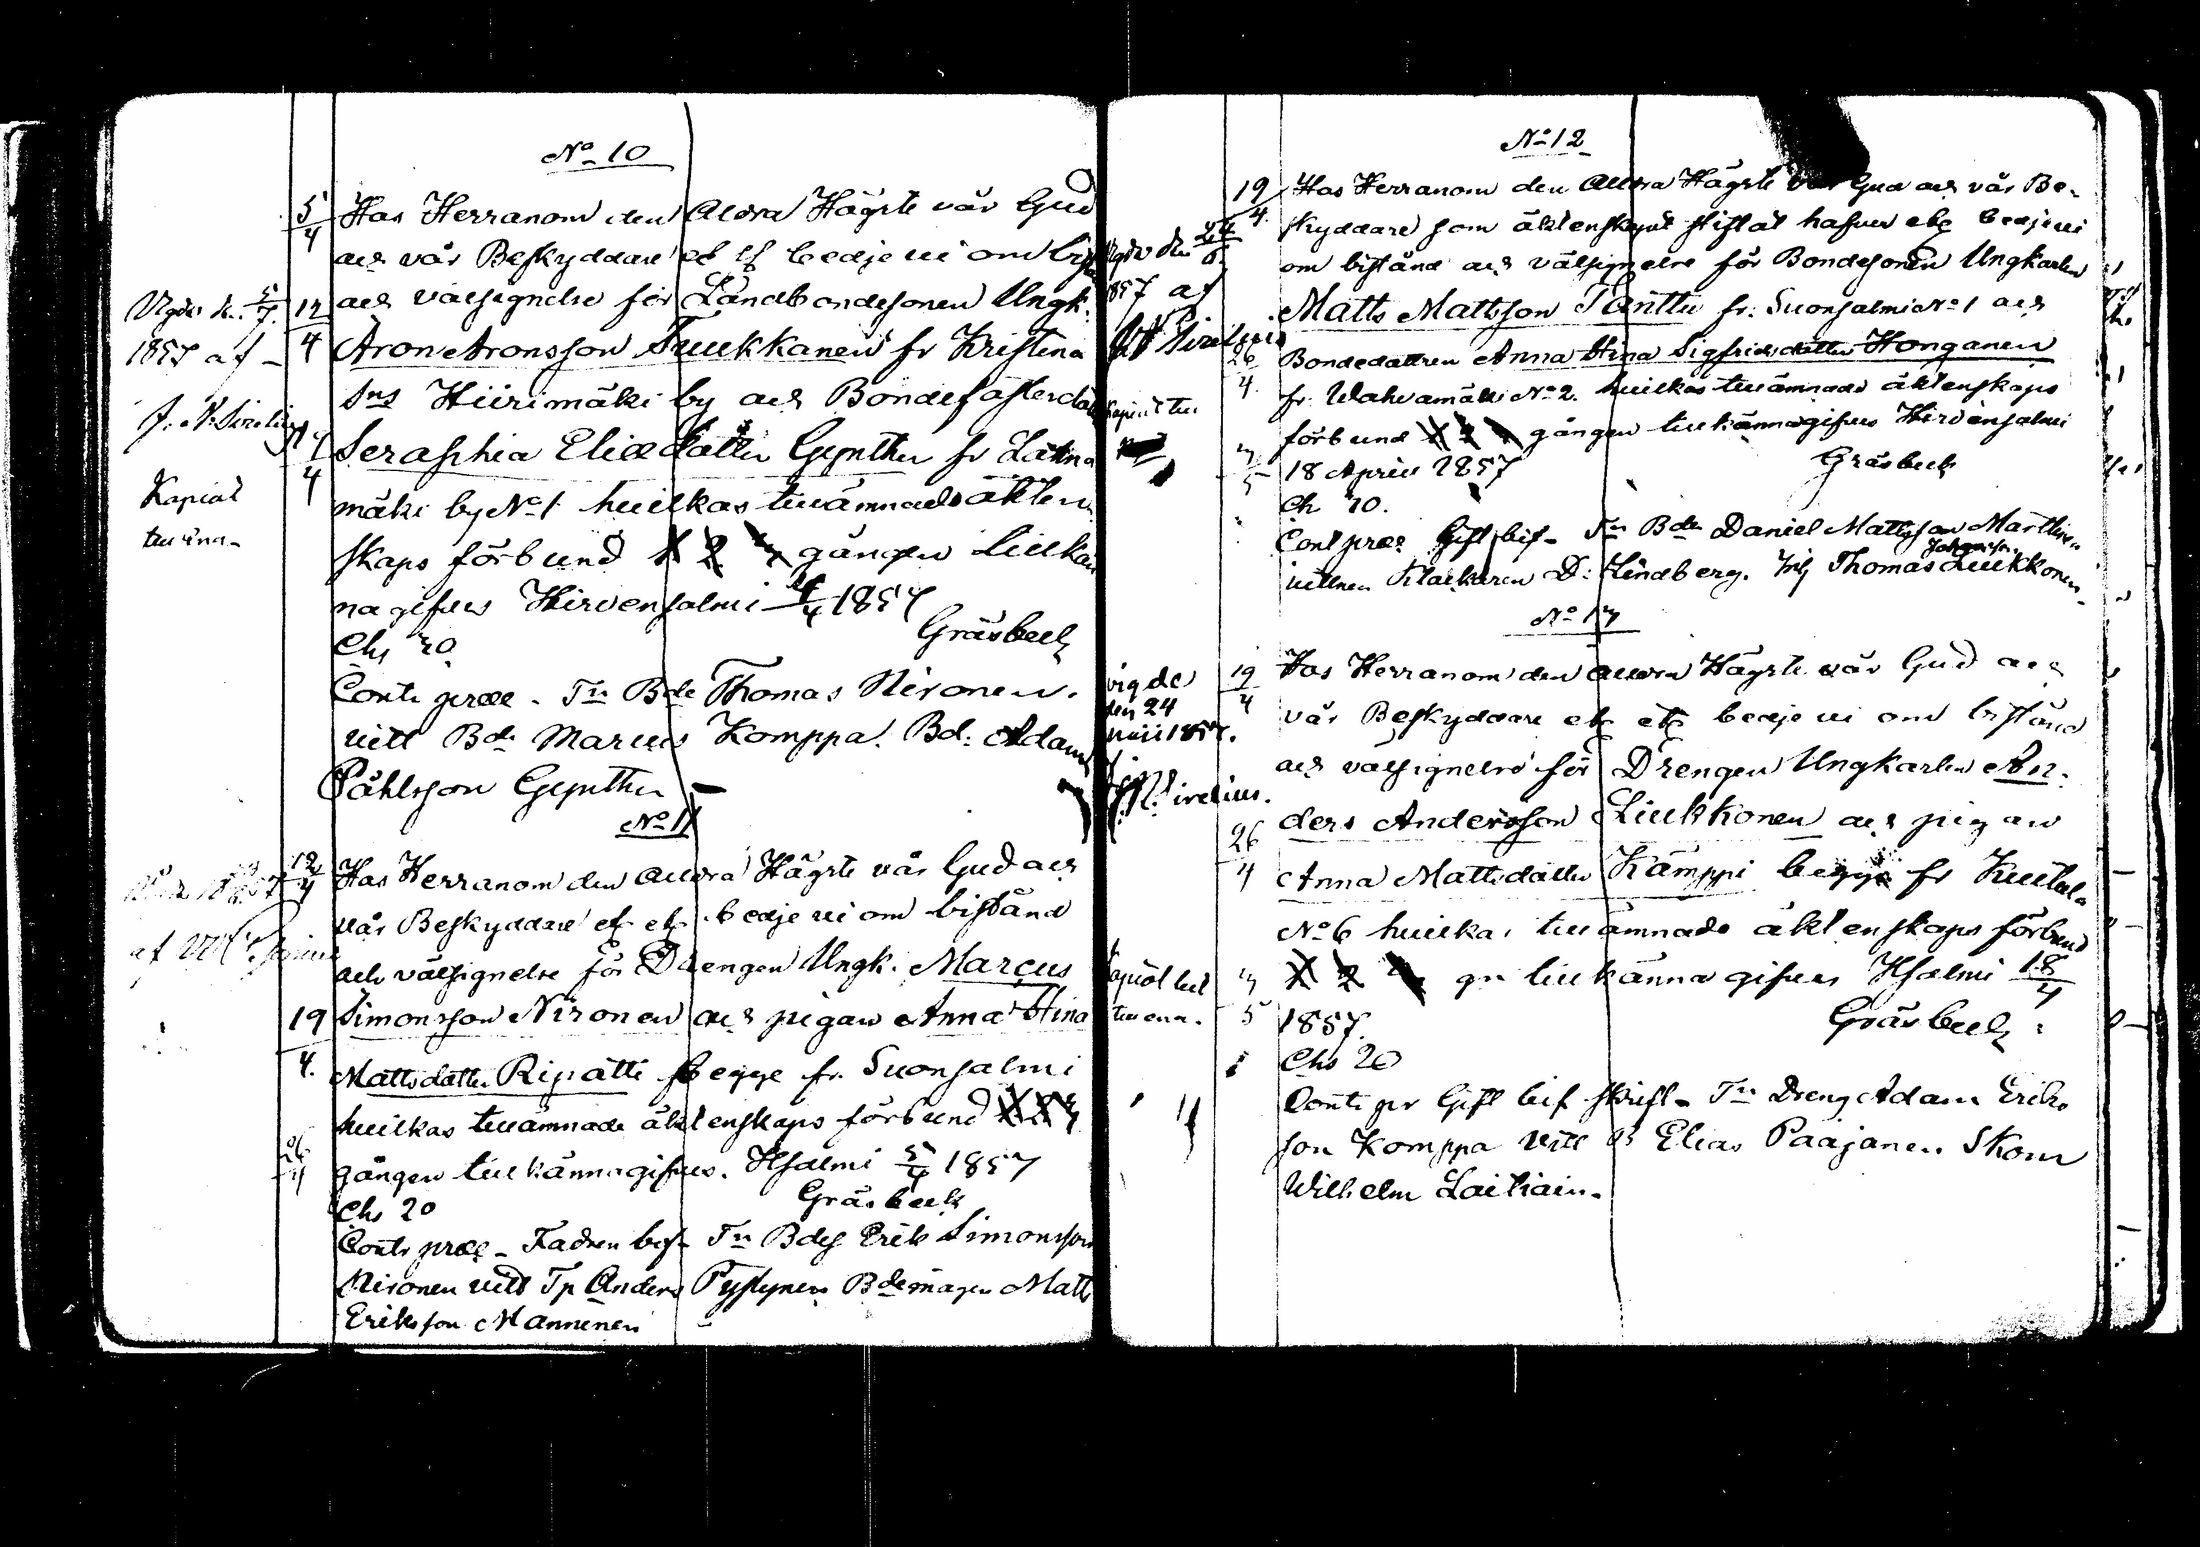 No 10
5/4 Hos Herranom den Aldra Högste vår Gud
och vår Beskyddare etc etc bedje vi om
och välsignelse för Landbondesonen Ungk.
Aron Aronsson Tuukkanen fr Kristina
Sns Hiirimäki by och Bonde
Seraphia Eliædotter Gynther fr
mäki by No 1. hvilkas tillämnade äkten
skaps förbund 1 2 3 gången tillkän
nagifves Hirvensalmi 1857
Gräsbeck
Chs 20
Contr præs. Fr Bde Thomas Nironen.
vitt Bde Marcus Komppa. Bd: Adam
Påhlsson Gynther
Vigde d. 5/7
1857 af
J. N. Sirelius
12/4
19/4
No 11
12/4 Hos Herranom den Aldra Högste vår Gud och
vår Beskyddare etc etc bedje vi om bistånd
och välsignelse för Drengen Ungk. Marcus
Simonsson Nironen och pigan Anna Stina
Mattsdotter Ripatti begge fr. Suonsalmi
hvilkas tillämnade äktenskaps förbund 1 2 3
gången tillkännagifves. Hsalmi 5/4 1857
Gräsbeck
Chs 20
Contr præs - Fadren bif. Fr Bdes Erik Simonsson
Nironen vitt Tp Anders Pystynen Bdemågen Matts
Eriksson Manninen
19/4.
26/4
No 12
19/4. Hos Herranom den Aldra Högste vår Gud och vår Be-
skyddare som äktenskapet stiftat hafver etc bedje vi
om bistånd och välsignelse för Bondesonen Ungkarlen
Matts Mattsson Tanttu fr. Suonsalmi No 1 och
Bondedottren Anna Stina Sigfridsdotter Honganen
fr. Wahvamäki No 2. hvilkas tillämnade äktenskaps
förbund 1 2 3 gången tillkännagifves Hirvensalmi
18 April 1857
Gräsbeck
Ch 20.
Cont præs Gift bif - Fr Bdn Daniel Mattsson
vittnen Klockaren D: Lindberg. Thomas Johansson Liukkonen
1857 af
26/4.
3/5
No 13
19/4 Hos Herranom den Aldra Högste vår Gud och
vår Beskyddare etc etc bedje vi om bistånd
och välsignelse för Drengen Ungkarlen An-
ders Andersson Liukkonen och pigan
Anna Mattsdotter Kämppi begge fr
No 6 hvilkas tillämnade äktenskaps förbund
1 2 3 gn tillkännagifves Hsalmi 18/4
1857.
Gräsbeck
Chs 20
Contr pr Gift bif skrift - Fr Dreng Adam Eriks
son Komppa Vitt Elias Paajanen Skom
Wilhelm Laitiain.
vigde
den 24
1857.
Sirelius.
26/4
3/5